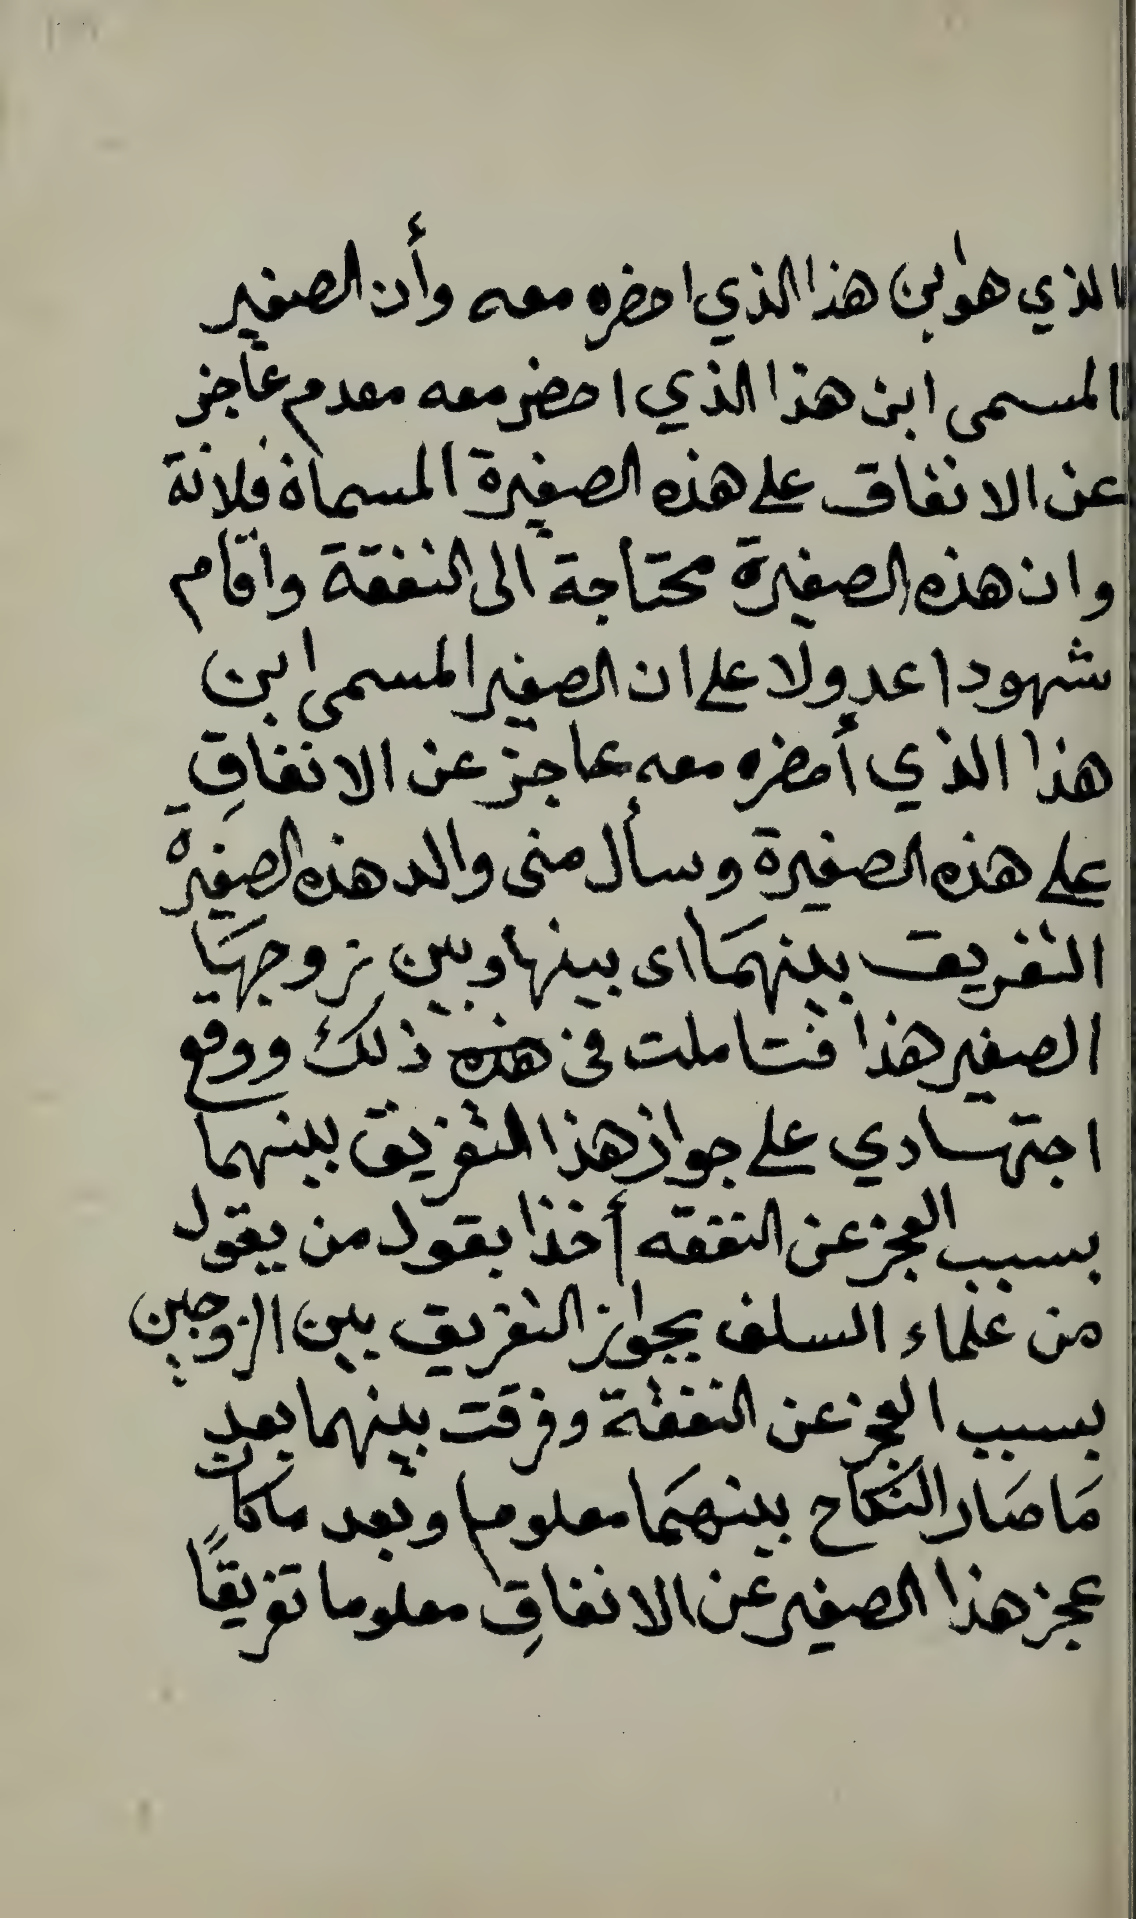 الذي هو ابن هذا الذي احضره معه وأن الصغير
المسمى ابن هذا الذي احضر معه معدم عاجز
عن الانفاق على هذه الصغيرة المسماة فلانة
وان هذه الصغيرة محتاجة الى النفقة واقام
شهودا عدولا على ان الصغير المسمى ابن
هذا الذي أحضره معه عاجز عن الانفاقِ
على هذه الصغيرة وسأل منى والد هذه الصغيرة
التفريق بينهمَا اى بينها وبين زوجهَا
الصغير هذا فتاملت فى هذه ذلك ووقع
اجتهادي على جواز هذا التفريق بينهما
بسبب العجز عن النفقه أخذا بقول من يقول
من علماء السلف بجواز التفريق بين الزوجين
بسبب العجز عن النفقة وفرقت بينهما بعد
مَا صَار النكَاح بينهمَا معلوما وبعد ماكان
عجز هذا الصغير عن الانفاقِ معلوما تفريقًا